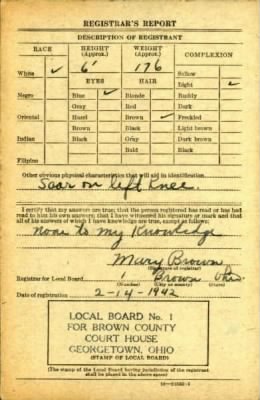 REGISTRAR'S REPORT
DESCRIPTION OF REGISTRANT
RACE HEIGHT (Approx.) WEIGHT (Approx.) COMPLEXION
White ✓ 6' 176 Sallow
EYES HAIR Light ✓
Negro Blue ✓ Blonde Ruddy
Gray Red Dark
Oriental Hazel Brown ✓ Freckled
Brown Black Light brown
Indian Black Gray Dark brown
Bald Black
Filipino
Other obvious physical characteristics that will aid in identification
Scar on left Knee.
I certify that my answers are true; that the person registered has read or has had
read to him his own answers; that I have witnessed his signature or mark and that
all of his answers of which I have knowledge are true, except as follows:
none to my Knowledge
Mary Brown
(Signature of registrar)
Registrar for Local Board 1 Brown Ohio
(Number) (City or county) (State)
Date of registration 2-14-1942
LOCAL BOARD No. 1
FOR BROWN COUNTY
COURT HOUSE
GEORGETOWN, OHIO
(STAMP OF LOCAL BOARD)
(The stamp of the Local Board having jurisdiction of the registrant
shall be placed in the above space)